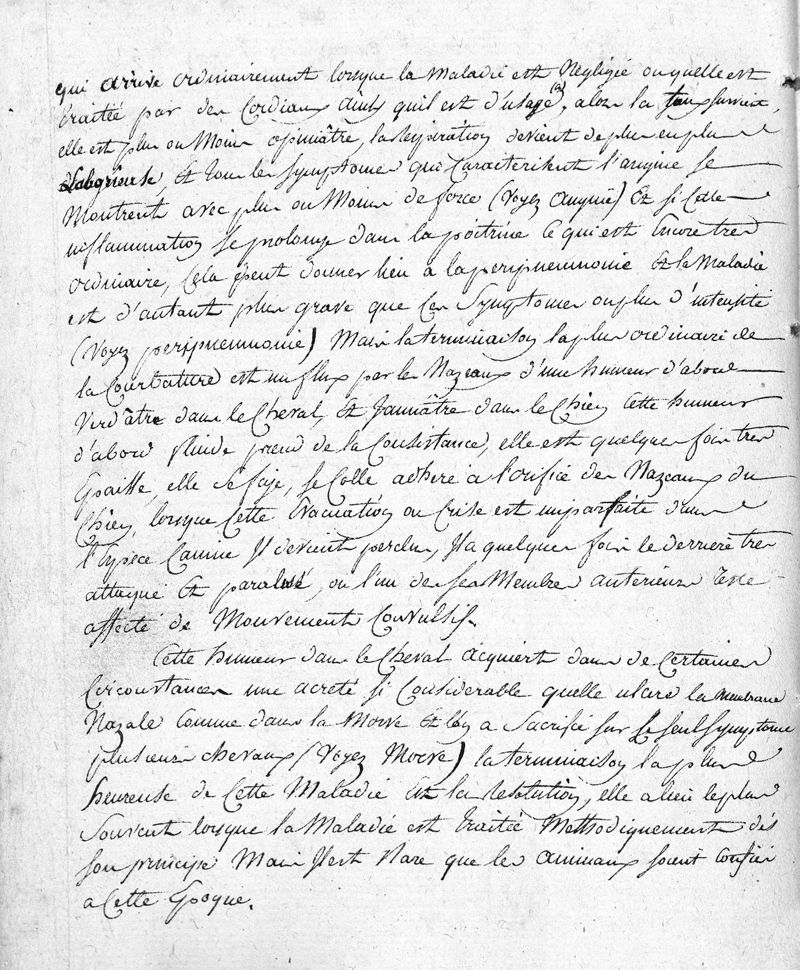 qui arrive ordinairement lorsque la Maladie est Négligée ou quelle est
traitée par des Cordiaux ainsi quil est d'usage (a), alors la toux survient,
elle est plus ou Moins opiniâtre, la respiration devient de plus en plus
laborieuse, Et tous les Symptomes qui Caracterisent l'angine se
Montrent avec plus ou Moins de force (Voyez angine) Et si Cette
inflammation se prolonge dans la poitrine Ce qui est Encore tres
ordinaire, Cela peut donner lieu a la peripneumonie Et la Maladie
est d'autant plus grave que Ces Symptomes ont plus d'intensité
(Voyez peripneumonie) Mais la terminaison la plus ordinaire de
la Courbature est un flux par les Nazeaux d'une humeur d'abord
Verdâtre dans le Cheval, Et Jaunâtre dans le Chien Cette humeur
d'abord fluide prend de la Consistance, elle est quelques fois tres
Epaisse, elle se fige, se Colle adhere a l'orifice des Nazeaux du
Chien, lorsque Cette Evacuation ou Crise est imparfaite dans
l'Espece Canine Il devient perclus, Il a quelques fois le derriere tres
attaqué Et paralisé, ou l'un de ses Membres anterieurs reste
affecté de Mouvements Convulsifs.
Cette humeur dans le Cheval acquiert dans de Certaines
Circonstances une acreté si Considerable quelle ulcere la Membrane
Nazale Comme dans la Morve Et l'on a Sacrifié sur Le seul Symptome
plusieurs chevaux (Voyez Morve) la terminaison la plus
heureuse de Cette Maladie Est la resolution, elle a lieu le plus
Souvent lorsque la Maladie est traitée Methodiquement dès
son principe Mais Il est Rare que les animaux soient Confiés
a Cette Epoque.